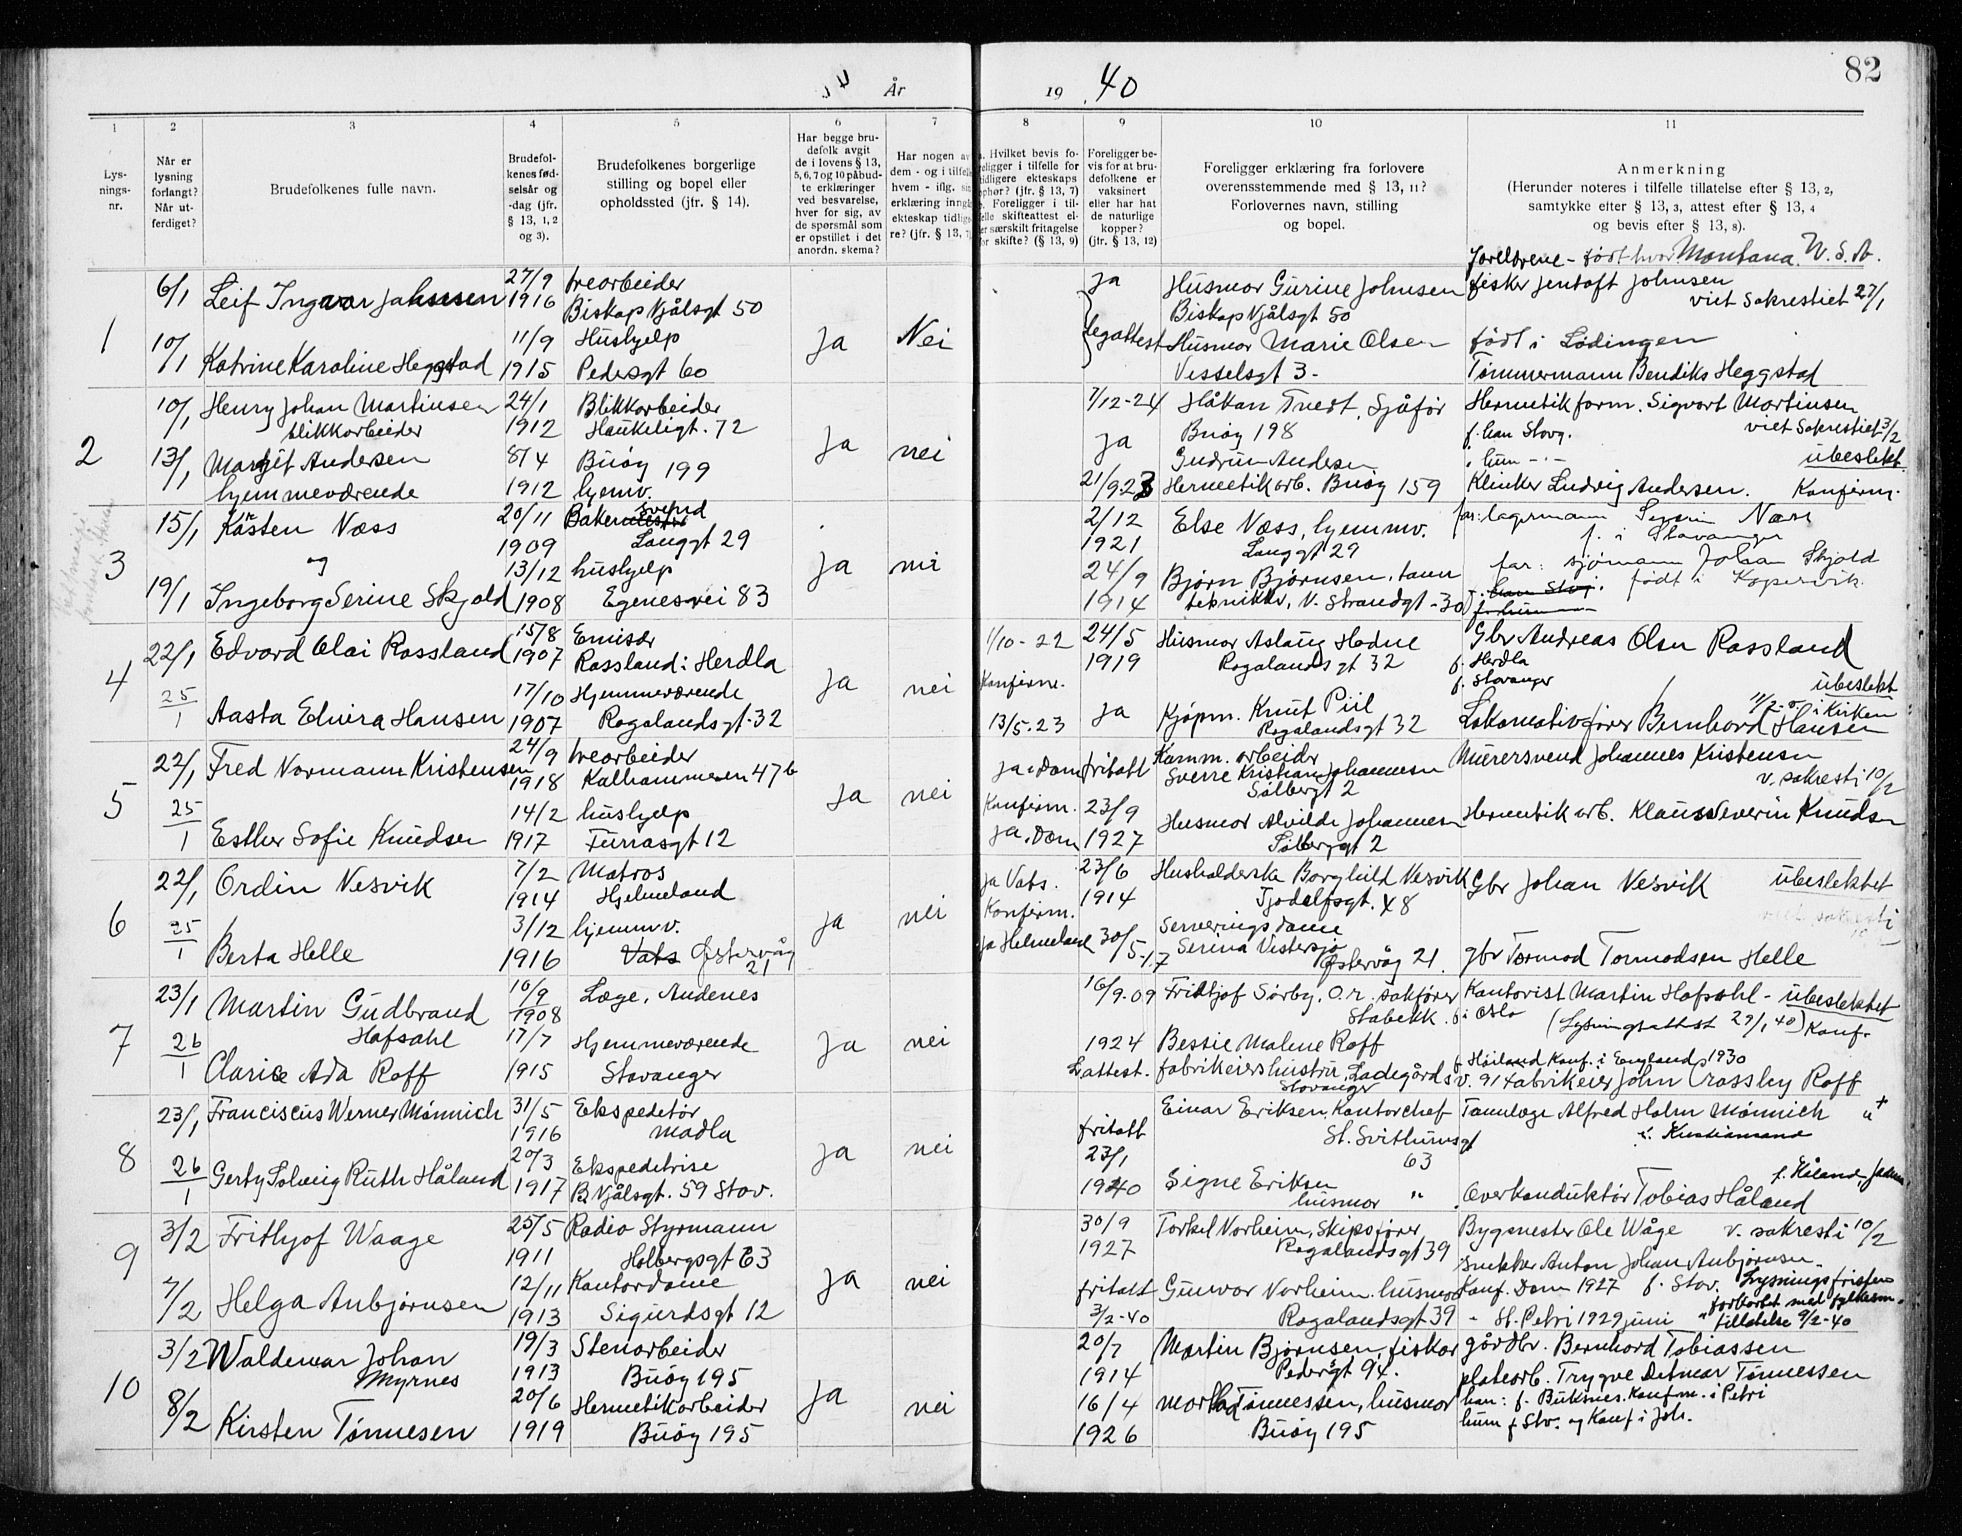 82
År 19 40
1 2 3 4 5 6 7 8 9 10 11
Lys-
nings-
nr.
Når er
lysning
forlangt?
Når ut-
ferdiget?
Brudefolkenes fulle navn.
Brudefol-
kenes fød-
selsår og
-dag (jfr.
§ 13, 1, 2
og 3).
Brudefolkenes borgerlige
stilling og bopel eller
opholdssted (jfr. § 14).
Har begge bru-
defolk avgit
de i lovens § 13,
5, 6, 7 og 10 påbud-
te erklæringer
ved besvarelse,
hver for sig, av
de spørsmål som
er opstillet i det
anordn. skema?
Har nogen av
dem - og i tilfelle
hvem - iflg. sin
erklæring inngått
ekteskap tidlige-
re? (jfr. § 13, 7)
Hvilket bevis fo-
religger i tilfelle for
tidligere ekteskaps
ophør? (jfr. § 13, 7)
Foreligger i til-
felle skifteattest el-
ler særskilt fritagelse
for skifte? (§ 13, 9)
Foreligger be-
vis for at bru-
defolkene er
vaksinert
eller har hat
de naturlige
kopper?
(jfr. § 13, 12)
Foreligger erklæring fra forlovere
overensstemmende med § 13, 11?
Forlovernes navn, stilling
og bopel.
Anmerkning
(Herunder noteres i tilfelle tillatelse efter § 13, 2,
samtykke efter § 13, 3, attest efter § 13, 4
og bevis efter § 13, 8).
Foreldrene - født hvor Montana. U.S.A.
1
6/1 Leif Ingvar Johnsen 27/9 1916 trearbeider
Biskop Njålsgt 50
ja Husmor Gurine Johnsen fisker Jentoft Johnsen
Biskop Njålsgt 50 viet Sakrestiet 27/1
10/1 Katrine Karoline Heggstad 11/9 1915 Hushjelp
Pedersgt 60
Ja Nei
legattest Husmor Marie Olsen født i Lødingen
Vesselsgt 3. Tømmermann Bendiks Heggstad
2
10/1 Henry Johan Martinsen 24/1 1912 Blikkarbeider
blikkarbeider Haukeligt. 72
7/12-24 Håkan Tvedt, Sjåfør Hermetikform. Sigvart Martinsen
Buøy 198 f. han Stvg. viet Sakrestiet 3/2
13/1 Margit Andersen 8/4 1912 Buøy 199
hjemmeværende hjemv.
Ja nei
ja Gudrun Andersen " hun -"- ubeslekt.
21/9-23 Hermetikarb. Buøy 159 Klinker Ludvig Andersen. Konfirm.
3
15/1 Kåsten Næss 20/11 1909 Bakermester Svend
Langgt 29
2/12 1921 Else Næss, hjemmv. far: lagermann Severin Næss
Langgt 29 f. i Stavanger
og
19/1 Ingeborg Serine Skjold 13/12 1908 hushjelp
Egenesvei 83
Ja nei
24/9 1914 Bjørn Bjørnsen, tann far: sjømann Johan Skjold
tekniker, V. Strandgt - 30 født i Kopervik
4
22/1 Edvard Olai Rossland 15/8 1907 Emisær
Rossland i Herdla
1/10-22 24/5 1919 Husmor Aslaug Hodne Gbr Andreas Olsen Rossland
Rogalandsgt 32 f. Herdla
f. Stavanger ubeslekt
25/1 Aasta Elvira Hansen 17/10 1907 Hjemmeværende
Rogalandsgt. 32
Ja nei
Konfirm. 13/5-23 ja Kjøpm. Knut Piil Lokomotivfører Bernhard Hansen
Rogalandsgt 32 i Kirken
5
22/1 Fred Normann Kristensen 24/9 1918 trearbeider
Kalhammeren 47b
ja. Dom fritatt Komm. arbeider Murersvend Johannes Kristensen
Sverre Kristian Johannesen v. sakresti 10/2
Sølbergt 2
25/1 Esther Sofie Knudsen 14/2 1917 hushjelp
Furrasgt 12
Ja nei
Konfirm. ja. Dom 23/9 1927 Husmor Alvilde Johannesen Hermetikarb. Klaus Severin Knudsen
Sølbergt 2
6
22/1 Ordin Vesvik 7/2 1914 Matros
Hjelmeland
ja Vats. Konfirm. 23/6 1914 Husholderske Borghild Vesvik Gbr Johan Vesvik ubeslektet
Tjodolfsgt. 48 viet sakresti
25/1 Berta Helle 3/12 1916 hjemmv.
Vats Østervåg 21
Ja nei
ja Helmeland 30/5-17 Serveringsdame
Serina Vestersjø
Østervåg 21. gbr Tormod Tormodsen Helle
7
23/1 Martin Gudbrand Hofsøhl 16/9 1908 Læge, Andenes
16/9-09 Fridtjof Sørby, O.r. sakfører Kontorist Martin Hofsøhl - ubeslektet
Stabekk. f. i Oslo (Lysningsattest 29/1 40) Konf.
26/1 Clarice Ada Roff 17/7 1915 Hjemmeværende
Stavanger
Ja nei
1924 Bessie Malene Roff
L. attest. fabrikeiershustru, Ladegårdsv. 91 Stavanger
f. Høiland Konf. i England 1930
Fabrikeier John Crossley Roff
8
23/1 Franciscus Werner Mönnich 31/5 1916 Ekspeditør
Madla
fritatt Einar Eriksen, Kontorchef Tannlæge Alfred Holm Mönnich
St. Svithunsgt 63 f. Kristiansand
26/1 Gerty Solveig Ruth Håland 20/3 1917 Ekspeditrise
B. Njålsgt. 59 Stav.
Ja nei
23/1 1940 Signe Eriksen f. Håland, Jæren
husmor " Overkonduktør Tobias Håland
9
3/2 Fritjof Waage 25/5 1911 Radio Styrmann
Holbergsgt 63
30/9 1927 Torkel Norheim, Skipsfører Bygmester Ole Wåge v. sakresti 10/2
Rogalandsgt 39 Snekker Anton Johan Anbjørnsen
7/2 Helga Anbjørnsen 12/11 1913 Kontordame
Sigurdsgt 12
Ja nei
fritatt 3/2-40 Gunvor Norheim. husmor Konf. Dom 1927 f. Stav. Lysningsfristen
Rogalandsgt 39 " St. Petri 1929 juni " forkortet med fylkesm.
tillatelse 9/2-40
10
3/2 Waldemar Johan Myrnes 19/3 1913 Stenarbeider
Buøy 195
20/7 1914 Martin Bjørnsen, fisker gårdbr. Bernhard Tobiassen
Pedersgt 94. platearb. Trygve Detmar Tønnessen
8/2 Kirsten Tønnesen 20/6 1919 Hermetikarbeider
Buøy 195
Ja nei
16/4 1926 Martha Tønnessen, husmor han: f. Buksnes. Konfm. i Petri
Buøy 195 hun f Stv. og Konf i Joh.